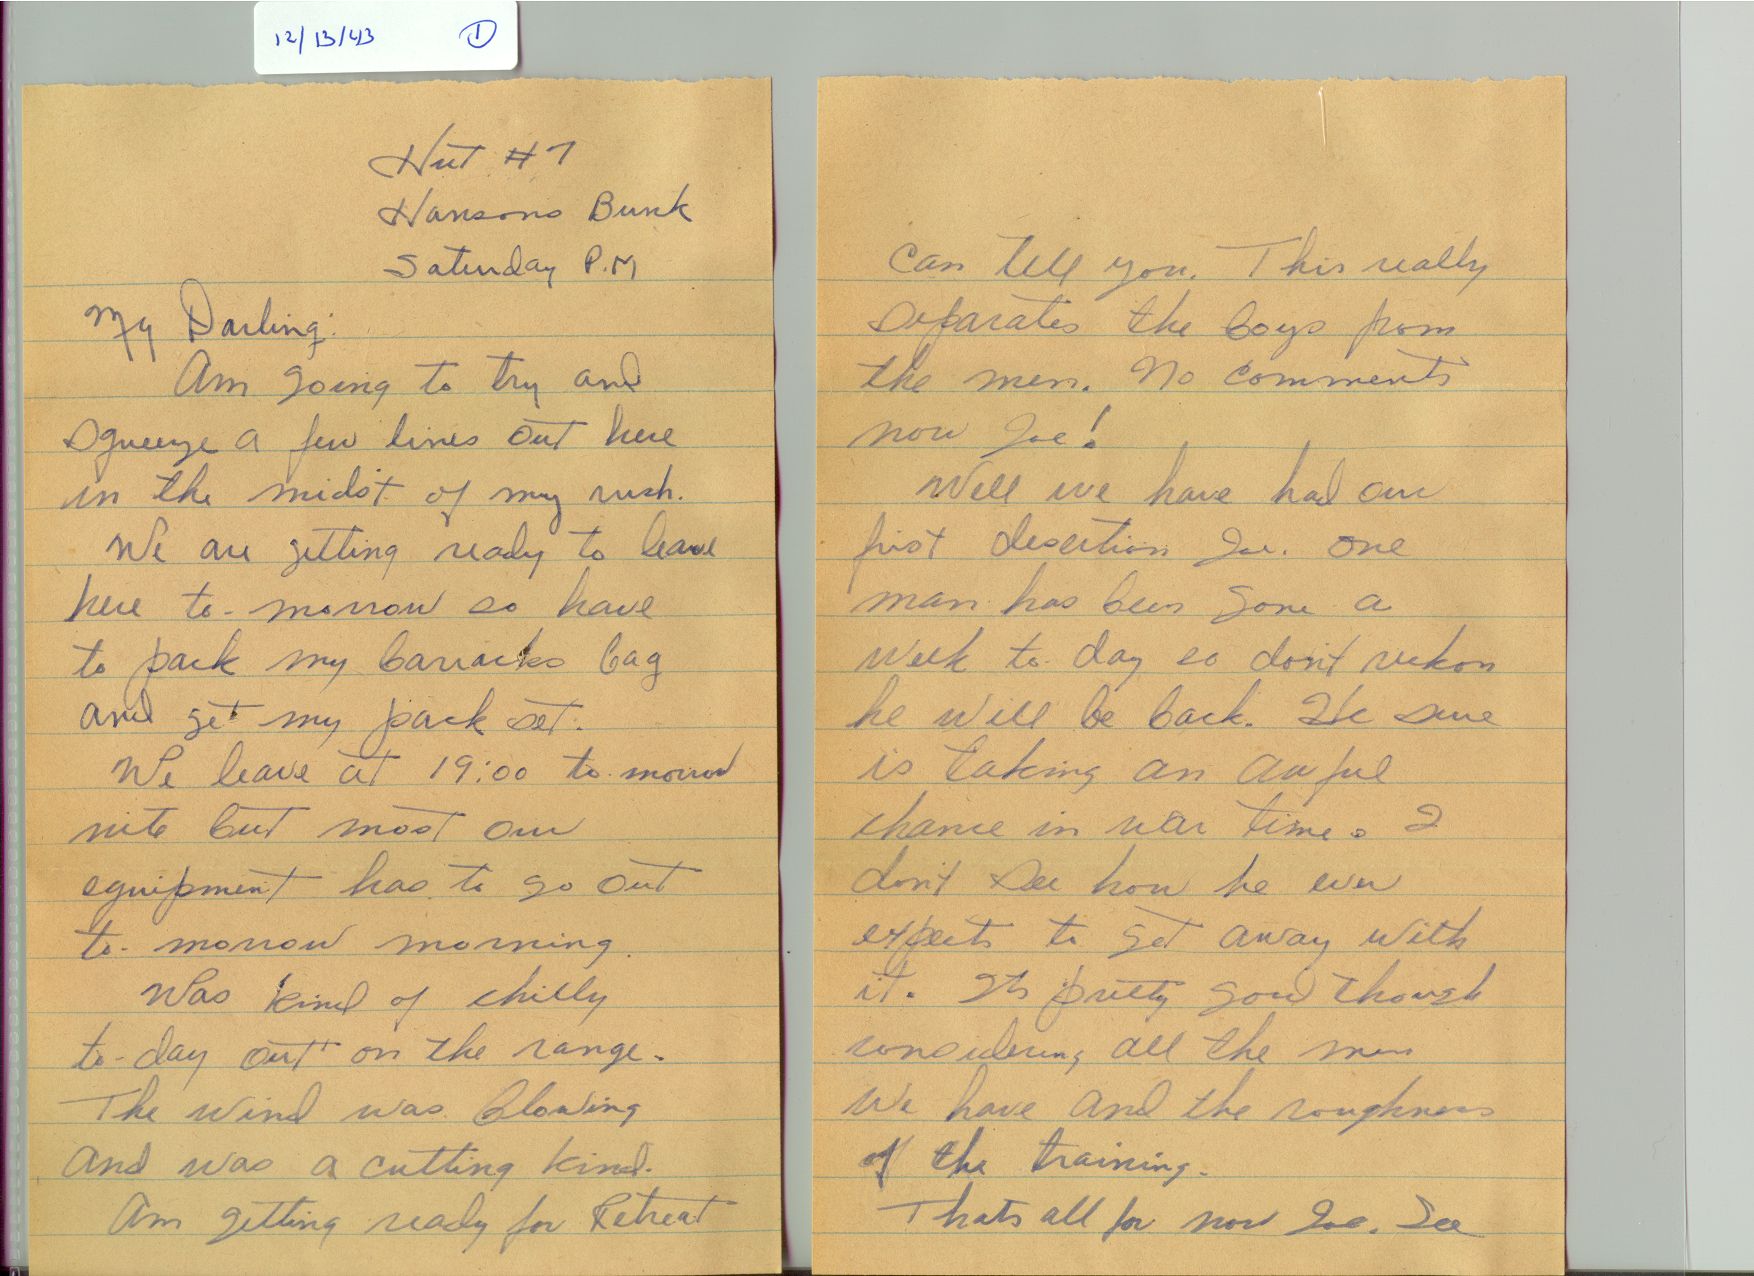 12/13/43 1
Hut #7
Hansons Bunk
Saturday P.M
My Darling:
Am going to try and
squeeze a few lines out here
in the midst of my rush.
We are getting ready to leave
here to-morrow so have
to pack my barracks bag
and get my pack set.
We leave at 19:00 to-morrow
nite but most our
equipment has to go out
to-morrow morning.
Was kind of chilly
to-day out on the range.
The wind was blowing
and was a cutting kind.
Am getting ready for Retreat
can tell you. This really
separates the boys from
the men. No comments
now Joe!
Well we have had our
first desertion Joe. One
man has been gone a
week to-day so don't reckon
he will be back. He sure
is taking an awful
chance in war time. I
don't see how he ever
expects to get away with
it. Its pretty good though
considering all the men
we have and the roughness
of the training.
Thats all for now Joe. See